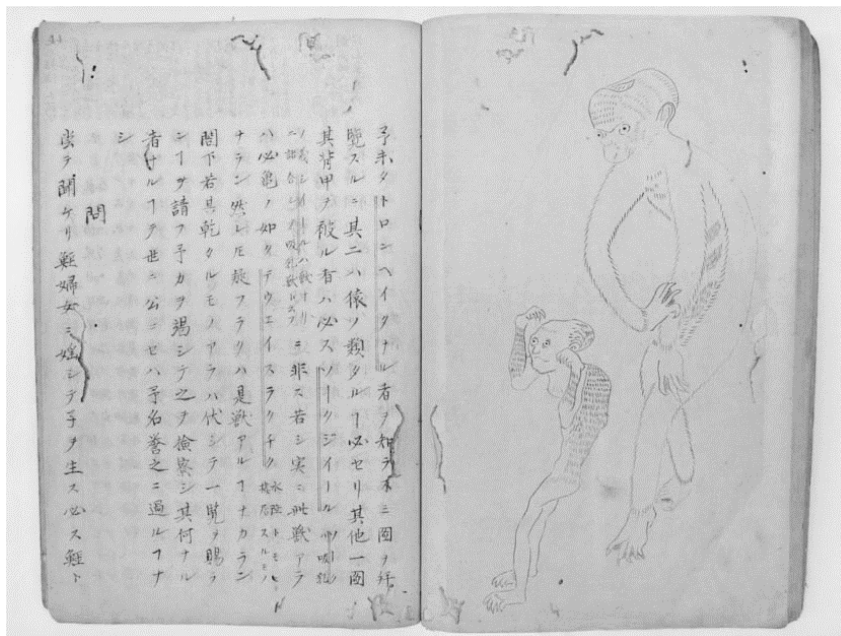 予未タトロンヘイタナル者ヲ知ラ不三圖ヲ拜
覽スルニ其二ハ猿ノ類タルヿ必セリ其他一圖
其背甲ヲ被ル者ハ必スソークジイール
ニ非ス若シ実ニ此獣アラ
ハ必亀ノ如クテウエイスラクチク水陸トモニ
ナラン然レ𪜈疑フラクハ是獣アルヿナカラン
閤下若其乾クルモノアラハ伏シテ一覽ヲ賜ラ
ンヿヲ請フ予力ヲ竭シテ之ヲ検察シ其何ナル
者ナルヿヲ世ニ公ニセハ予名誉之ニ過ルヿナ
シ
問
ヲ聞ケリ婦女ニ婬シテ子ヲ生ス必ス